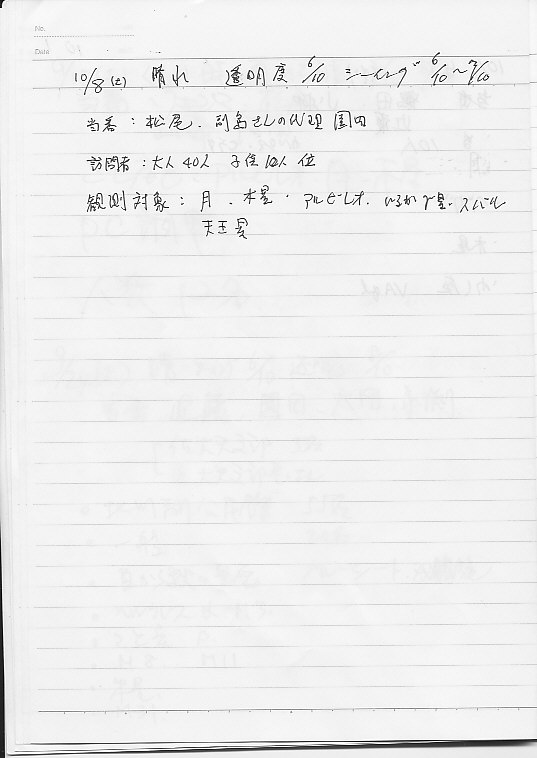 No.
Date
10/8(土) 晴れ 透明度 6/10 シーイング 6/10~7/10
当番:松尾、副島さんの代理 園田
訪問者:大人40人 子供10人位
観測対象:月、木星、アルビレオ、いるかγ星、スバル
天王星